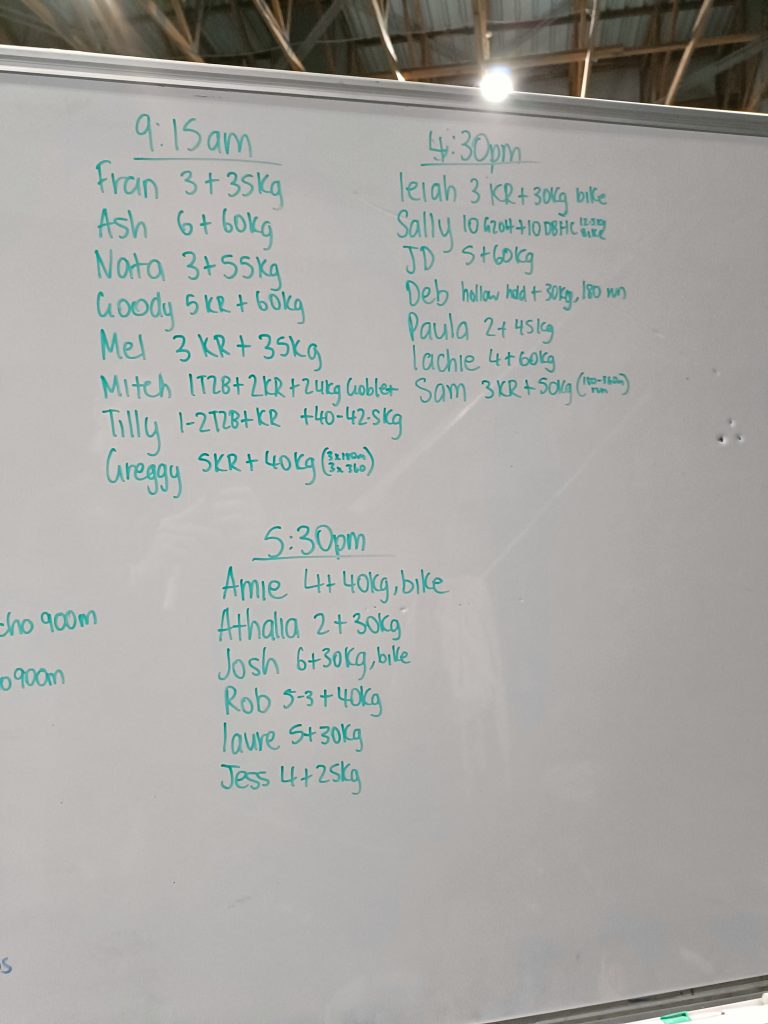 9:15am
Fran 3+35kg
Ash 6+60kg
Nata 3+55kg
Goody 5KR+60kg
Mel 3 KR+35kg
Mitch 1T2B+2KR+24kg Goblet
Tilly 1-2T2B+KR +40-42.5kg
Greggy 5KR+40kg (3x180m
3x360)
4:30pm
leiah 3 KR+30kg bike
Sally 10 +10 DBHC 12.5kg
bike
JD 5+60kg
Deb hollow hold+30kg, 180 run
Paula 2+45kg
lachie 4+60kg
Sam 3KR+50kg (180-360m
run)
5:30pm
Amie 4+40kg, bike
Athalia 2+30kg
Josh 6+30kg, bike
Rob 5-3+40kg
laure 5+30kg
Jess 4+25kg
cho 900m
o 900m